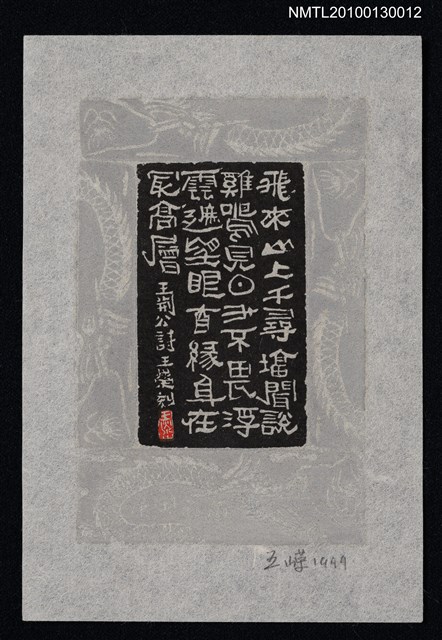 NMTL20100130012
飛來山上千尋塔聞說
雞鳴見日升不畏浮
雲遮望眼自緣身在
最高層
王荊公詩王嶸刻
王嶸 1999